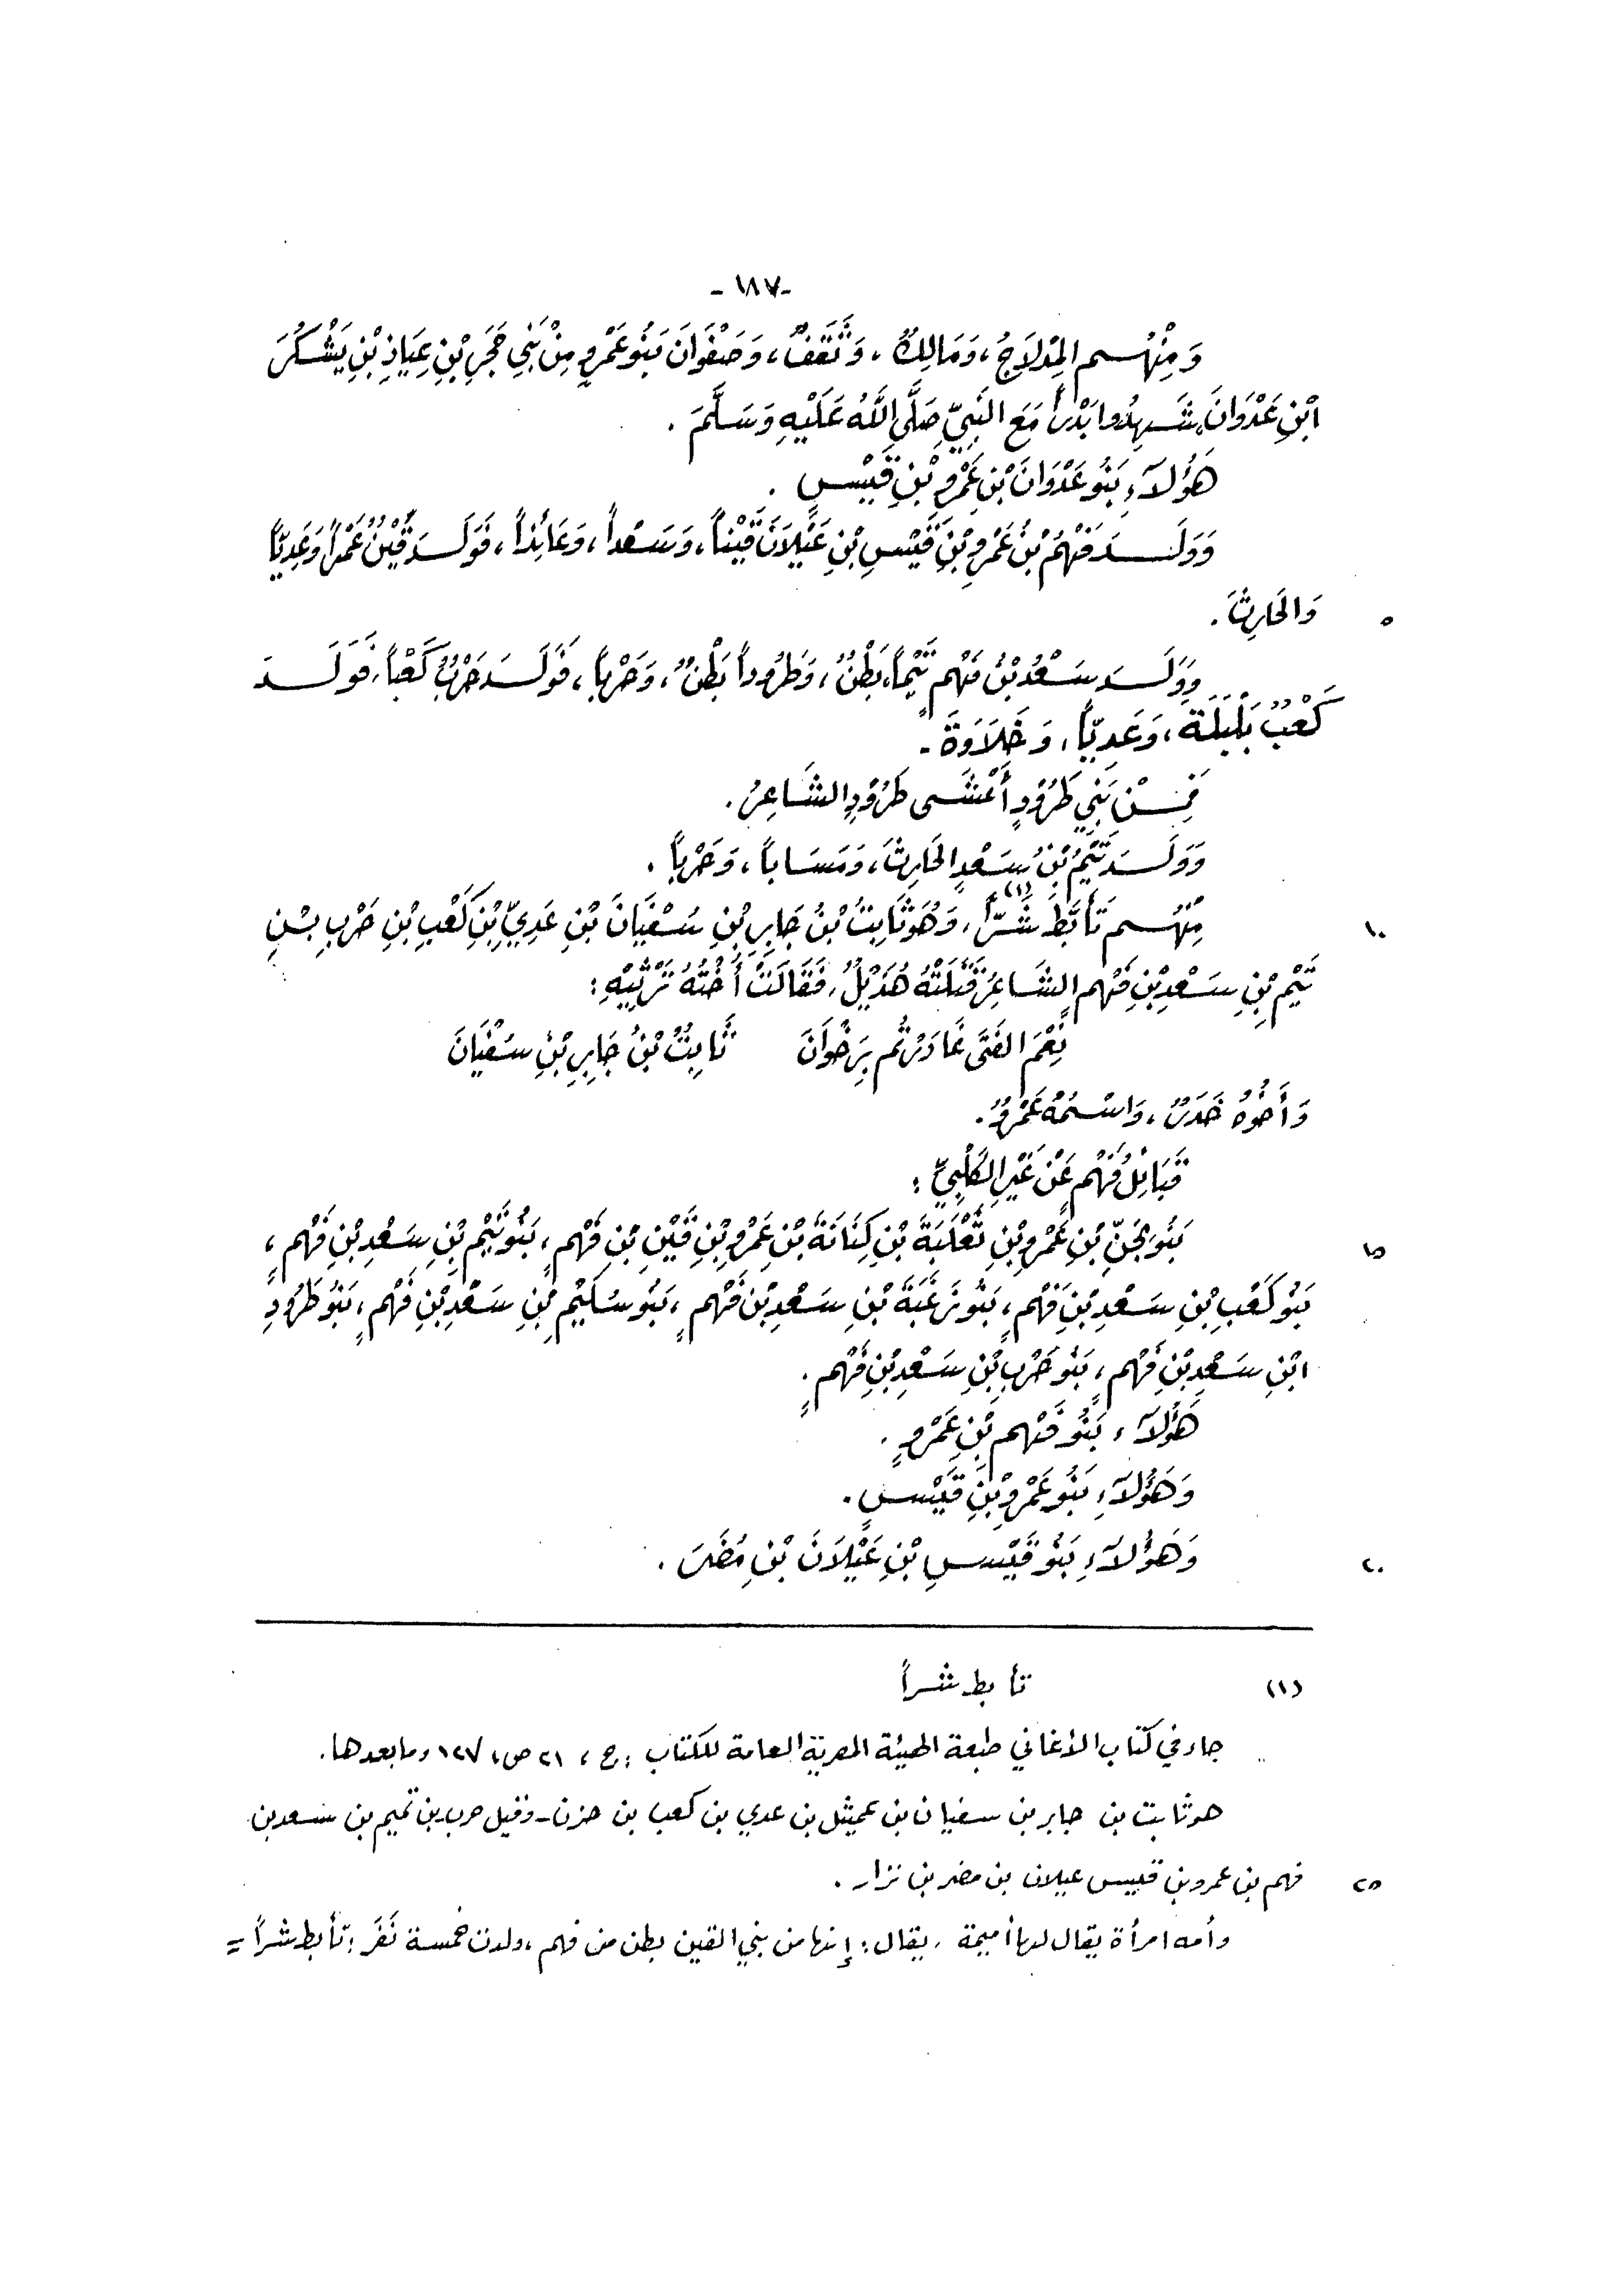 -١٨٧-
وَمِنْهُم المِدْلَاجُ، وَمَالِكٌ، وَثَقَفٌ، وَصَفْوَانَ بَنُو عَمْرٍو مِنْ بَنِي حَجَرِ بْنِ عِيَاذِ بْنِ يَشْكُرَ
ابْنِ عَدْوَانَ، شَهِدُوا بَدْراً مَعَ النَّبِيِّ صَلَّى اللَّهُ عَلَيْهِ وَسَلَّمَ .
هَؤُلَاَءِ بَنُو عَدْوَانَ بْنِ عَمْرِو بْنِ قَيْسٍ .
وَوَلَدَ فَهْمُ بْنُ عَمْرِو بْنِ قَيْسِ بْنِ عَيْلَانَ قَيْناً، وَسَعْداً، وَعَائِذاً، فَوَلَدَ قَيْنُ عَمْراً وَعَدِيّاً
٥ وَالحَارِثَ .
وَوَلَدَ سَعْدُ بْنُ فَهْمٍ تَيْماً، بَطْنٌ، وَطَرُوداً بَطْنٌ، وَحَرْباً، فَوَلَدَ حَرْبٌ كَعْباً، فَوَلَدَ
كَعْبٌ بَلْبَلَةَ، وَعَدِيّاً، وَخَلَاوَةَ .
فَمِنْ بَنِي طَرُوْدٍ أَعْشَى طَرُوْدٍ الشَّاعِرُ .
وَوَلَدَ تَيْمُ بْنُ سَعْدٍ الحَارِثَ، وَمَسَاباً، وَحَرْباً .
١٠ مِنْهُم تَأَبَّطَ شَرّاً (١)، وَهُوَ ثَابِتُ بْنُ جَابِرِ بْنِ سُفْيَانَ بْنِ عَدِيِّ بْنِ كَعْبِ بْنِ حَرْبِ بْنِ
تَيْمِ بْنِ سَعْدِ بْنِ فَهْمٍ الشَّاعِرُ قَتَلَتْهُ هُذَيْلٌ، فَقَالَتْ أُخْتُهُ تَرْثِيْهِ:
نِعْمَ الفَتَى غَادَرْتُم بِرَخْوَانَ ثَابِتُ بْنُ جَابِرِ بْنِ سُفْيَانَ
وَأَخُوْهُ خَدَرٌ، وَاسْمُهُ عَمْرٌو .
قَبَائِلُ فَهْمٍ عَنْ غَيْرِ الكَلْبِيِّ :
١٥ بَنُو جِنِّ بْنِ عَمْرِو بْنِ ثَعْلَبَةَ بْنِ كِنَانَةَ بْنِ عَمْرِو بْنِ قَيْنِ بْنِ فَهْمٍ، بَنُو تَيْمِ بْنِ سَعْدِ بْنِ فَهْمٍ،
بَنُو كَعْبِ بْنِ سَعْدِ بْنِ فَهْمٍ، بَنُو زَعْبَةَ بْنِ سَعْدِ بْنِ فَهْمٍ، بَنُو سُلَيْمِ بْنِ سَعْدِ بْنِ فَهْمٍ، بَنُو طَرُوْدِ
ابْنِ سَعْدِ بْنِ فَهْمٍ، بَنُو حَرْبِ بْنِ سَعْدِ بْنِ فَهْمٍ .
هَؤُلَاَءِ بَنُو فَهْمِ بْنِ عَمْرٍو .
وَهَؤُلَاَءِ بَنُو عَمْرِو بْنِ قَيْسٍ .
٢٠ وَهَؤُلَاَءِ بَنُو قَيْسِ بْنِ عَيْلَانَ بْنِ مُضَرَ .
(١) تأبط شراً
جاء في كتاب الأغاني طبعة الهيئة المصرية العامة للكتاب : ج ، ٢١ ص، ١٢٧ وما بعدها .
هو ثابت بن جابر بن سفيان بن عميثل بن عدي بن كعب بن حزن - وقيل حرب بن تميم بن سعد بن
٢٥ فهم بن عمرو بن قيس عيلان بن مضر بن نزار .
وأمه امرأة يقال لها أميمة ، يقال : إنها من بني القين بطن من فهم ، ولدت خمسة نَفَر : تأبط شراً =